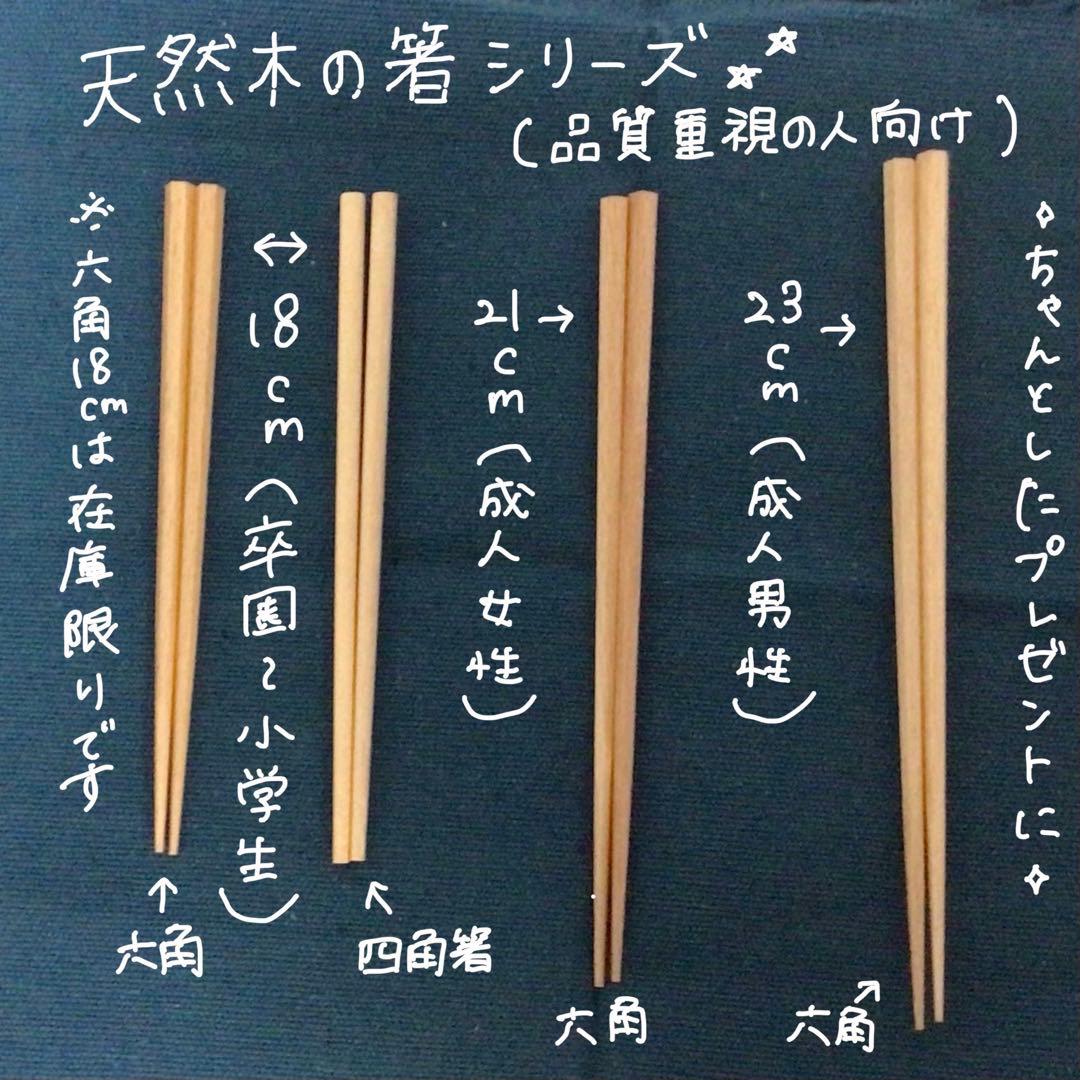 天然木の箸シリーズ
(品質重視の人向け)
※六角18cmは在庫限りです
18cm(卒園~小学生)
21cm(成人女性)
23cm(成人男性)
ちゃんとしたプレゼントに
六角
四角箸
六角
六角